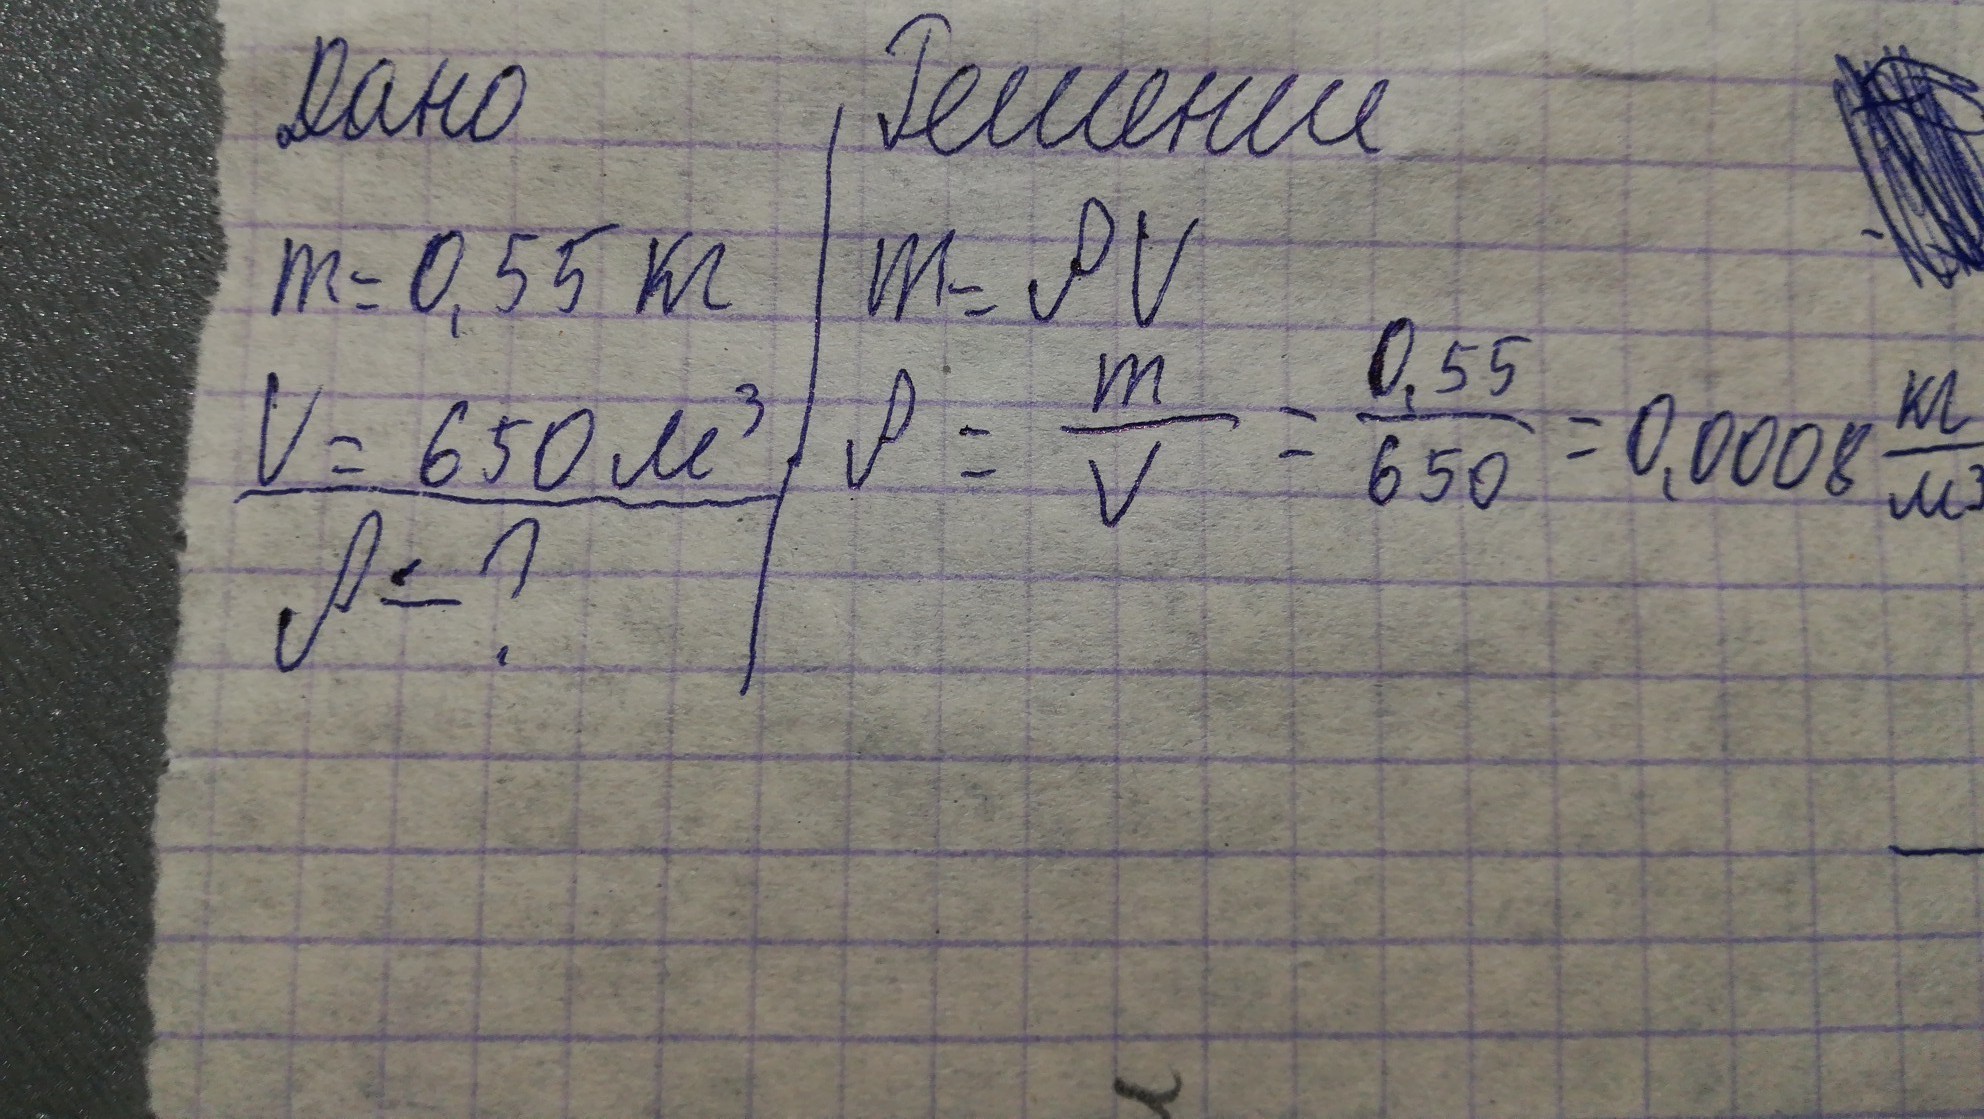 Дано
m = 0,55 кг
V = 650 м³
ρ = ?
Решение
m = ρV
ρ = m/V = 0,55/650 = 0,0008 кг/м³